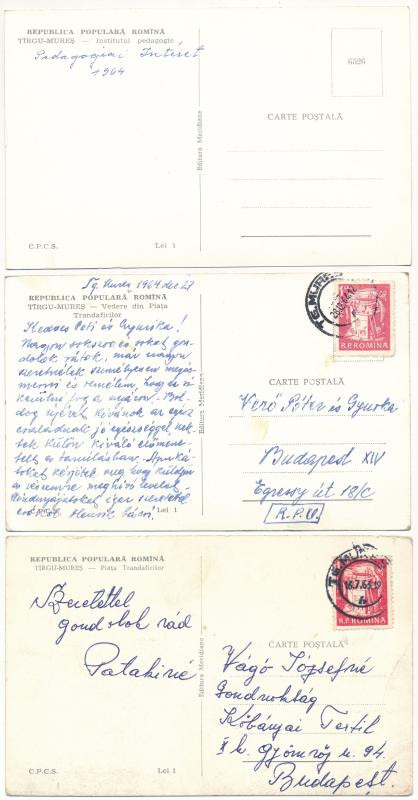 REPUBLICA POPULARĂ ROMÎNĂ
TÎRGU-MUREȘ — Institutul pedagogic
Pedagogiai Intézet
1964
6526
CARTE POȘTALĂ
Editura Meridiane
C.P.C.S. Lei 1
Tg. Mures 1964 dec 27
REPUBLICA POPULARĂ ROMÎNĂ
TÎRGU-MUREȘ — Vedere din Piața
Trandafirilor
Kedves Peti és Gyurika!
Nagyon sokszor és sokat gon-
dolok rátok, már nagyon
szeretnélek személyesen megis-
merni és remélem, hogy
sikerülni fog a nyáron. Bol-
dog újévet kívánok az egész
családnak jó egészséggel nek-
tek külön kiváló előmene-
telt a tanulásban.
kérjétek meg hogy küldjön
meghívó levelet
szeretettel
C.P.C.S. Lei 1
Editura Meridiane
TG. MUREȘ
R.P. ROMINA
CARTE POȘTALĂ
Verő Péter és Gyurka
Budapest XIV
Egressy út 18/c
R.P.U.
REPUBLICA POPULARĂ ROMÎNĂ
TÎRGU-MUREȘ — Piața Trandafirilor
Szeretettel
gondolok rád
Patakiné
C.P.C.S. Lei 1
Editura Meridiane
R.P. ROMINA
CARTE POȘTALĂ
Vágó Józsefné
Gondnokság
Kőbányai Textil
X k. Gyömrői u. 94.
Budapest.